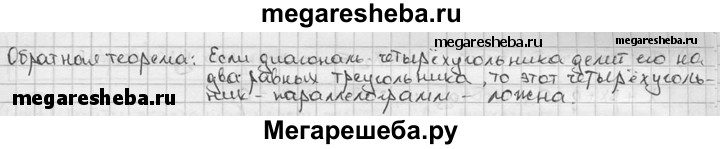 megaresheba.ru
megaresheba.ru
Обратная теорема: Если диагональ четырёхугольника делит его на
два равных треугольника, то этот четырёхуголь-
ник - параллелограмм - ложна.
megaresheba.ru
megaresheba.ru
Мегарешеба.ру